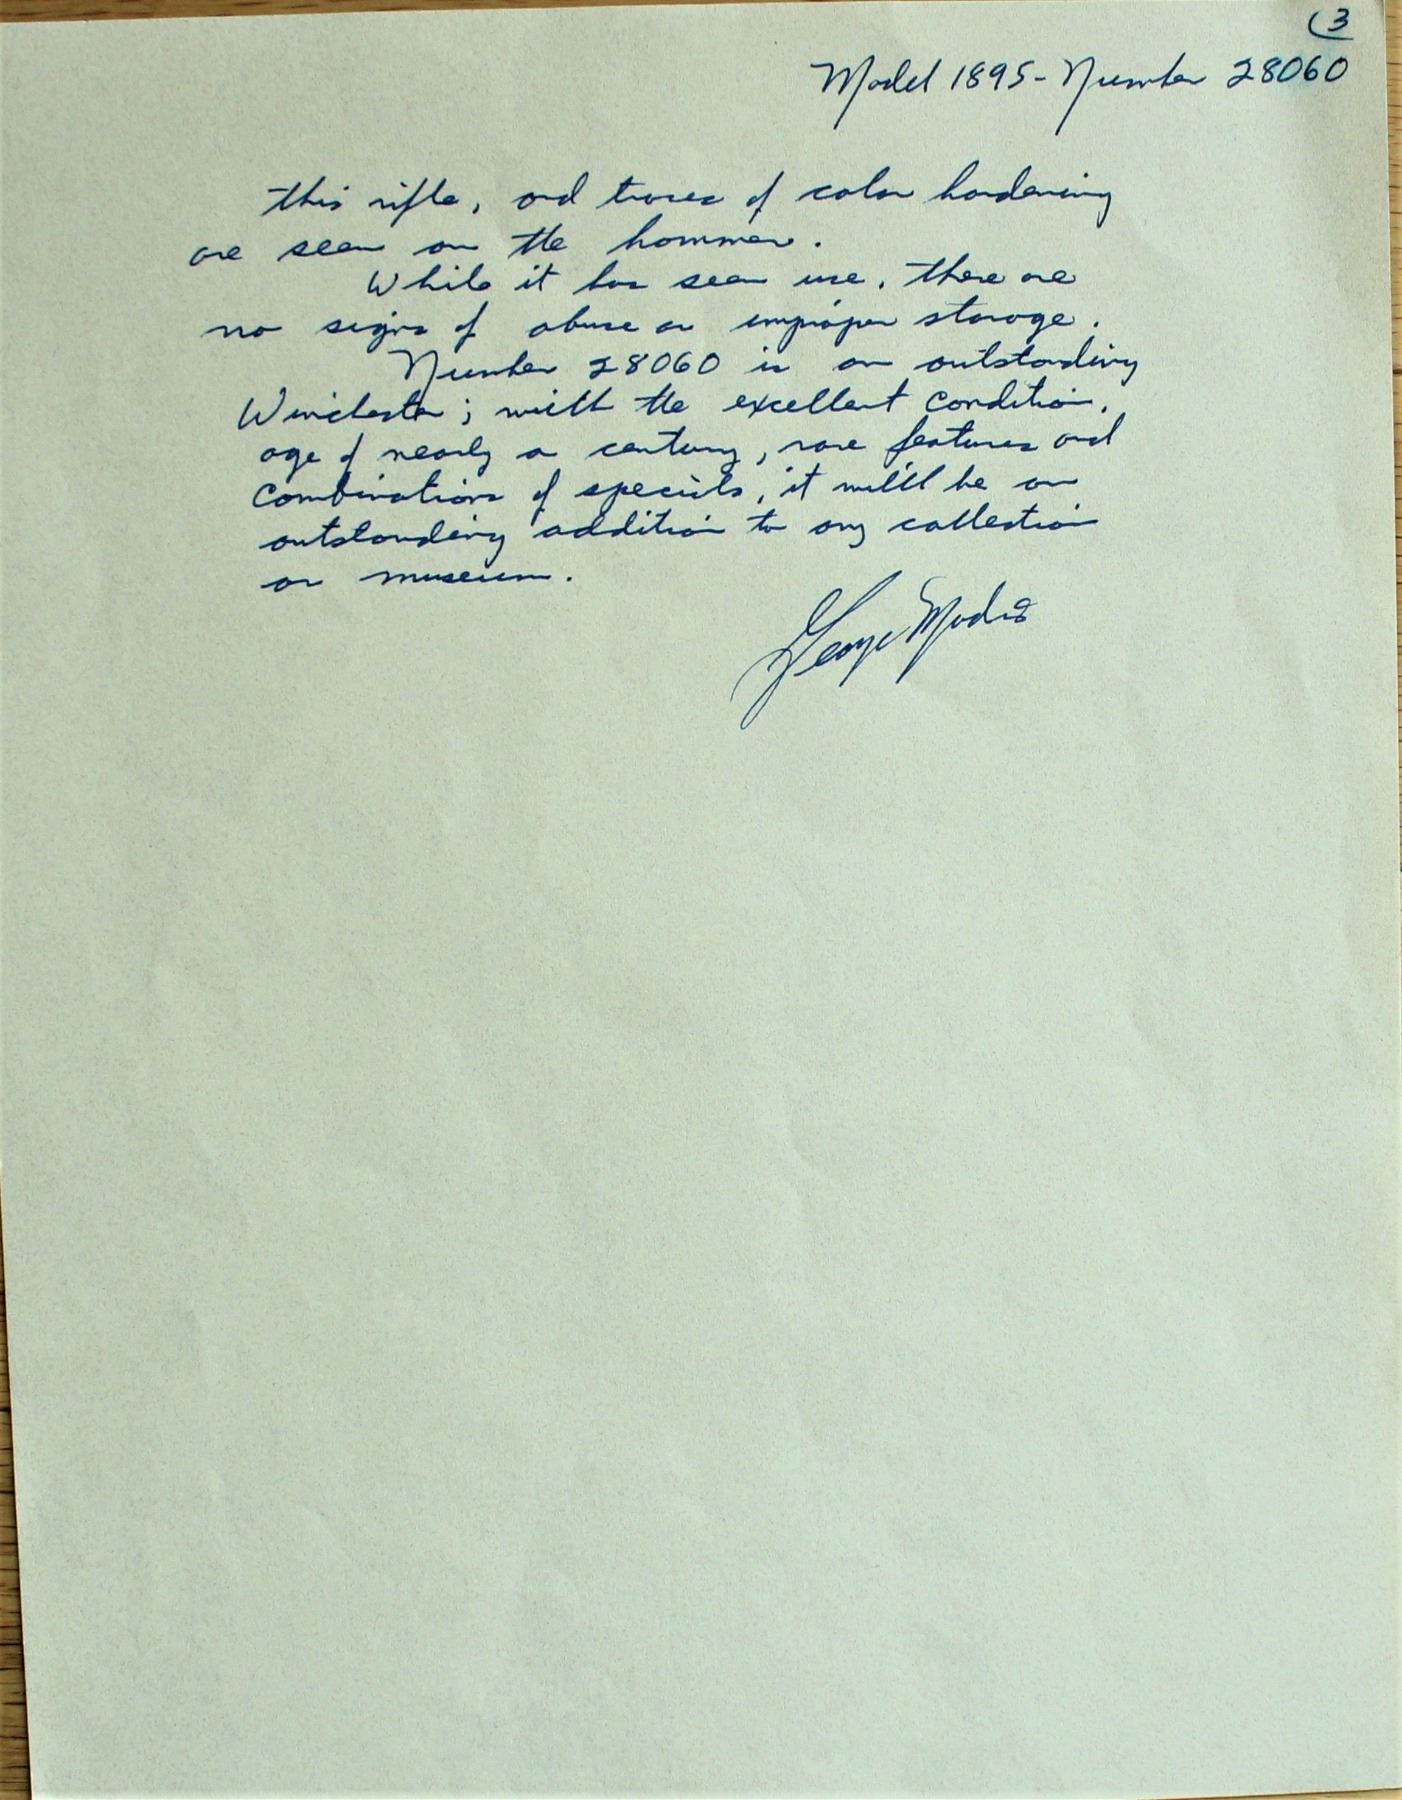 3
Model 1895 - Number 28060
this rifle, and traces of color hardening
are seen on the hammer.
While it has seen use, there are
no signs of abuse or improper storage.
Number 28060 is an outstanding
Winchester; with the excellent condition,
age of nearly a century, rare features and
combinations of specials, it will be an
outstanding addition to any collection
or museum.
George Madis